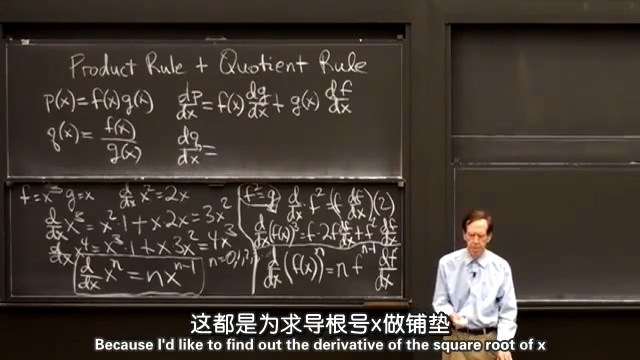 Product Rule + Quotient Rule
p(x) = f(x)g(x) dp/dx = f(x) dg/dx + g(x) df/dx
q(x) = f(x)/g(x) dq/dx =
g=x d/dx x² = 2x
d/dx x³ = x²·1 + x·2x = 3x²
d/dx x⁴ = x³·1 + x·3x² = 4x³
d/dx xⁿ = nxⁿ⁻¹ n=0,1,2,
f² = g d/dx f² = f df/dx (2)
d/dx (f(x))³ = f·2f df/dx + f² df/dx
d/dx (f(x))ⁿ = n fⁿ⁻¹ df/dx
这都是为求导根号x做铺垫
Because I'd like to find out the derivative of the square root of x